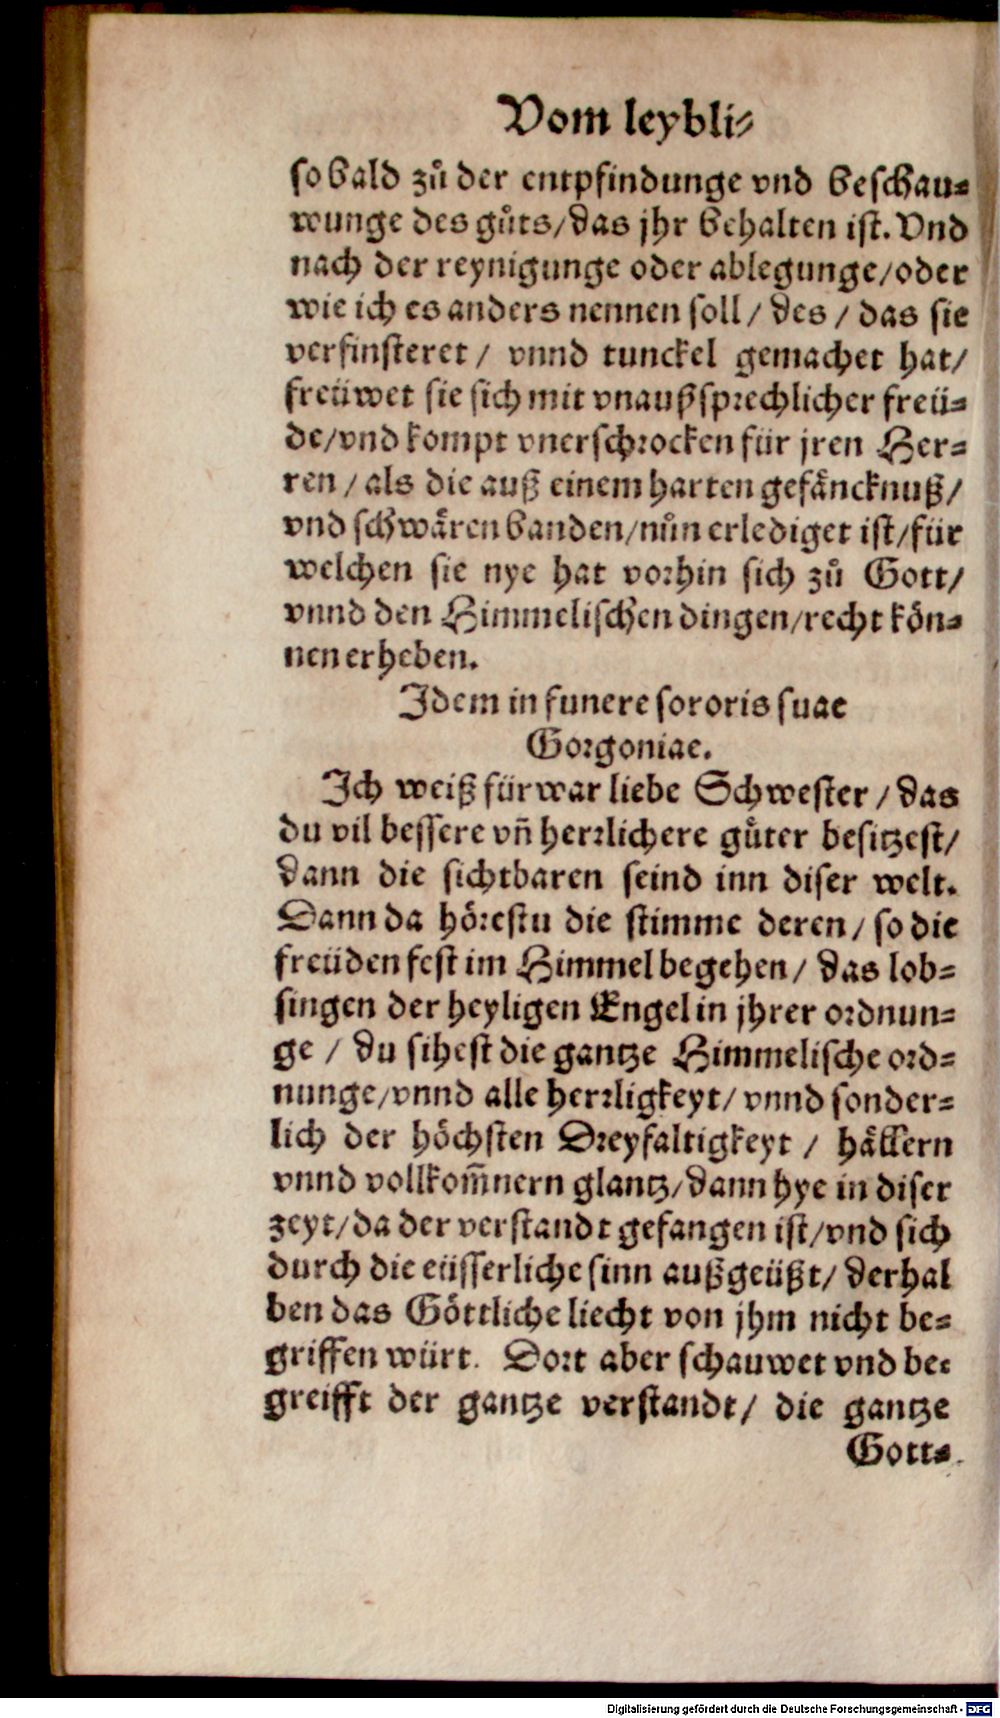 Vom leybli⸗
so bald zů der entpfindunge vnd beschau⸗
wunge des gůts/das jhr behalten ist. Vnd
nach der reynigunge oder ablegunge/oder
wie ich es anders nennen soll/ des / das sie
verfinsteret / vnnd tunckel gemachet hat/
freüwet sie sich mit vnaußsprechlicher freü⸗
de/vnd kompt vnerschrocken für jren Her⸗
ren / als die auß einem harten gefäncknuß/
vnd schwären banden/nůn erlediget ist/für
welchen sie nye hat vorhin sich zů Gott/
vnnd den Himmelischen dingen/recht kön⸗
nen erheben.
Idem in funere sororis suae
Gorgoniae.
Ich weiß fürwar liebe Schwester / das
du vil bessere vñ herrlichere gůter besitzest/
dann die sichtbaren seind inn diser welt.
Dann da hörestu die stimme deren / so die
freüden fest im Himmel begehen / das lob⸗
singen der heyligen Engel in jhrer ordnun⸗
ge / du sihest die gantze Himmelische ord⸗
nunge/vnnd alle herrligkeyt/ vnnd sonder⸗
lich der höchsten Dreyfaltigkeyt / hällern
vnnd vollkom̃nern glantz/dann hye in diser
zeyt/da der verstandt gefangen ist/vnd sich
durch die eüsserliche sinn außgeüßt/ derhal
ben das Göttliche liecht von jhm nicht be⸗
griffen würt. Dort aber schauwet vnd be⸗
greifft der gantze verstandt/ die gantze
Gott⸗
Digitalisierung gefördert durch die Deutsche Forschungsgemeinschaft - DFG